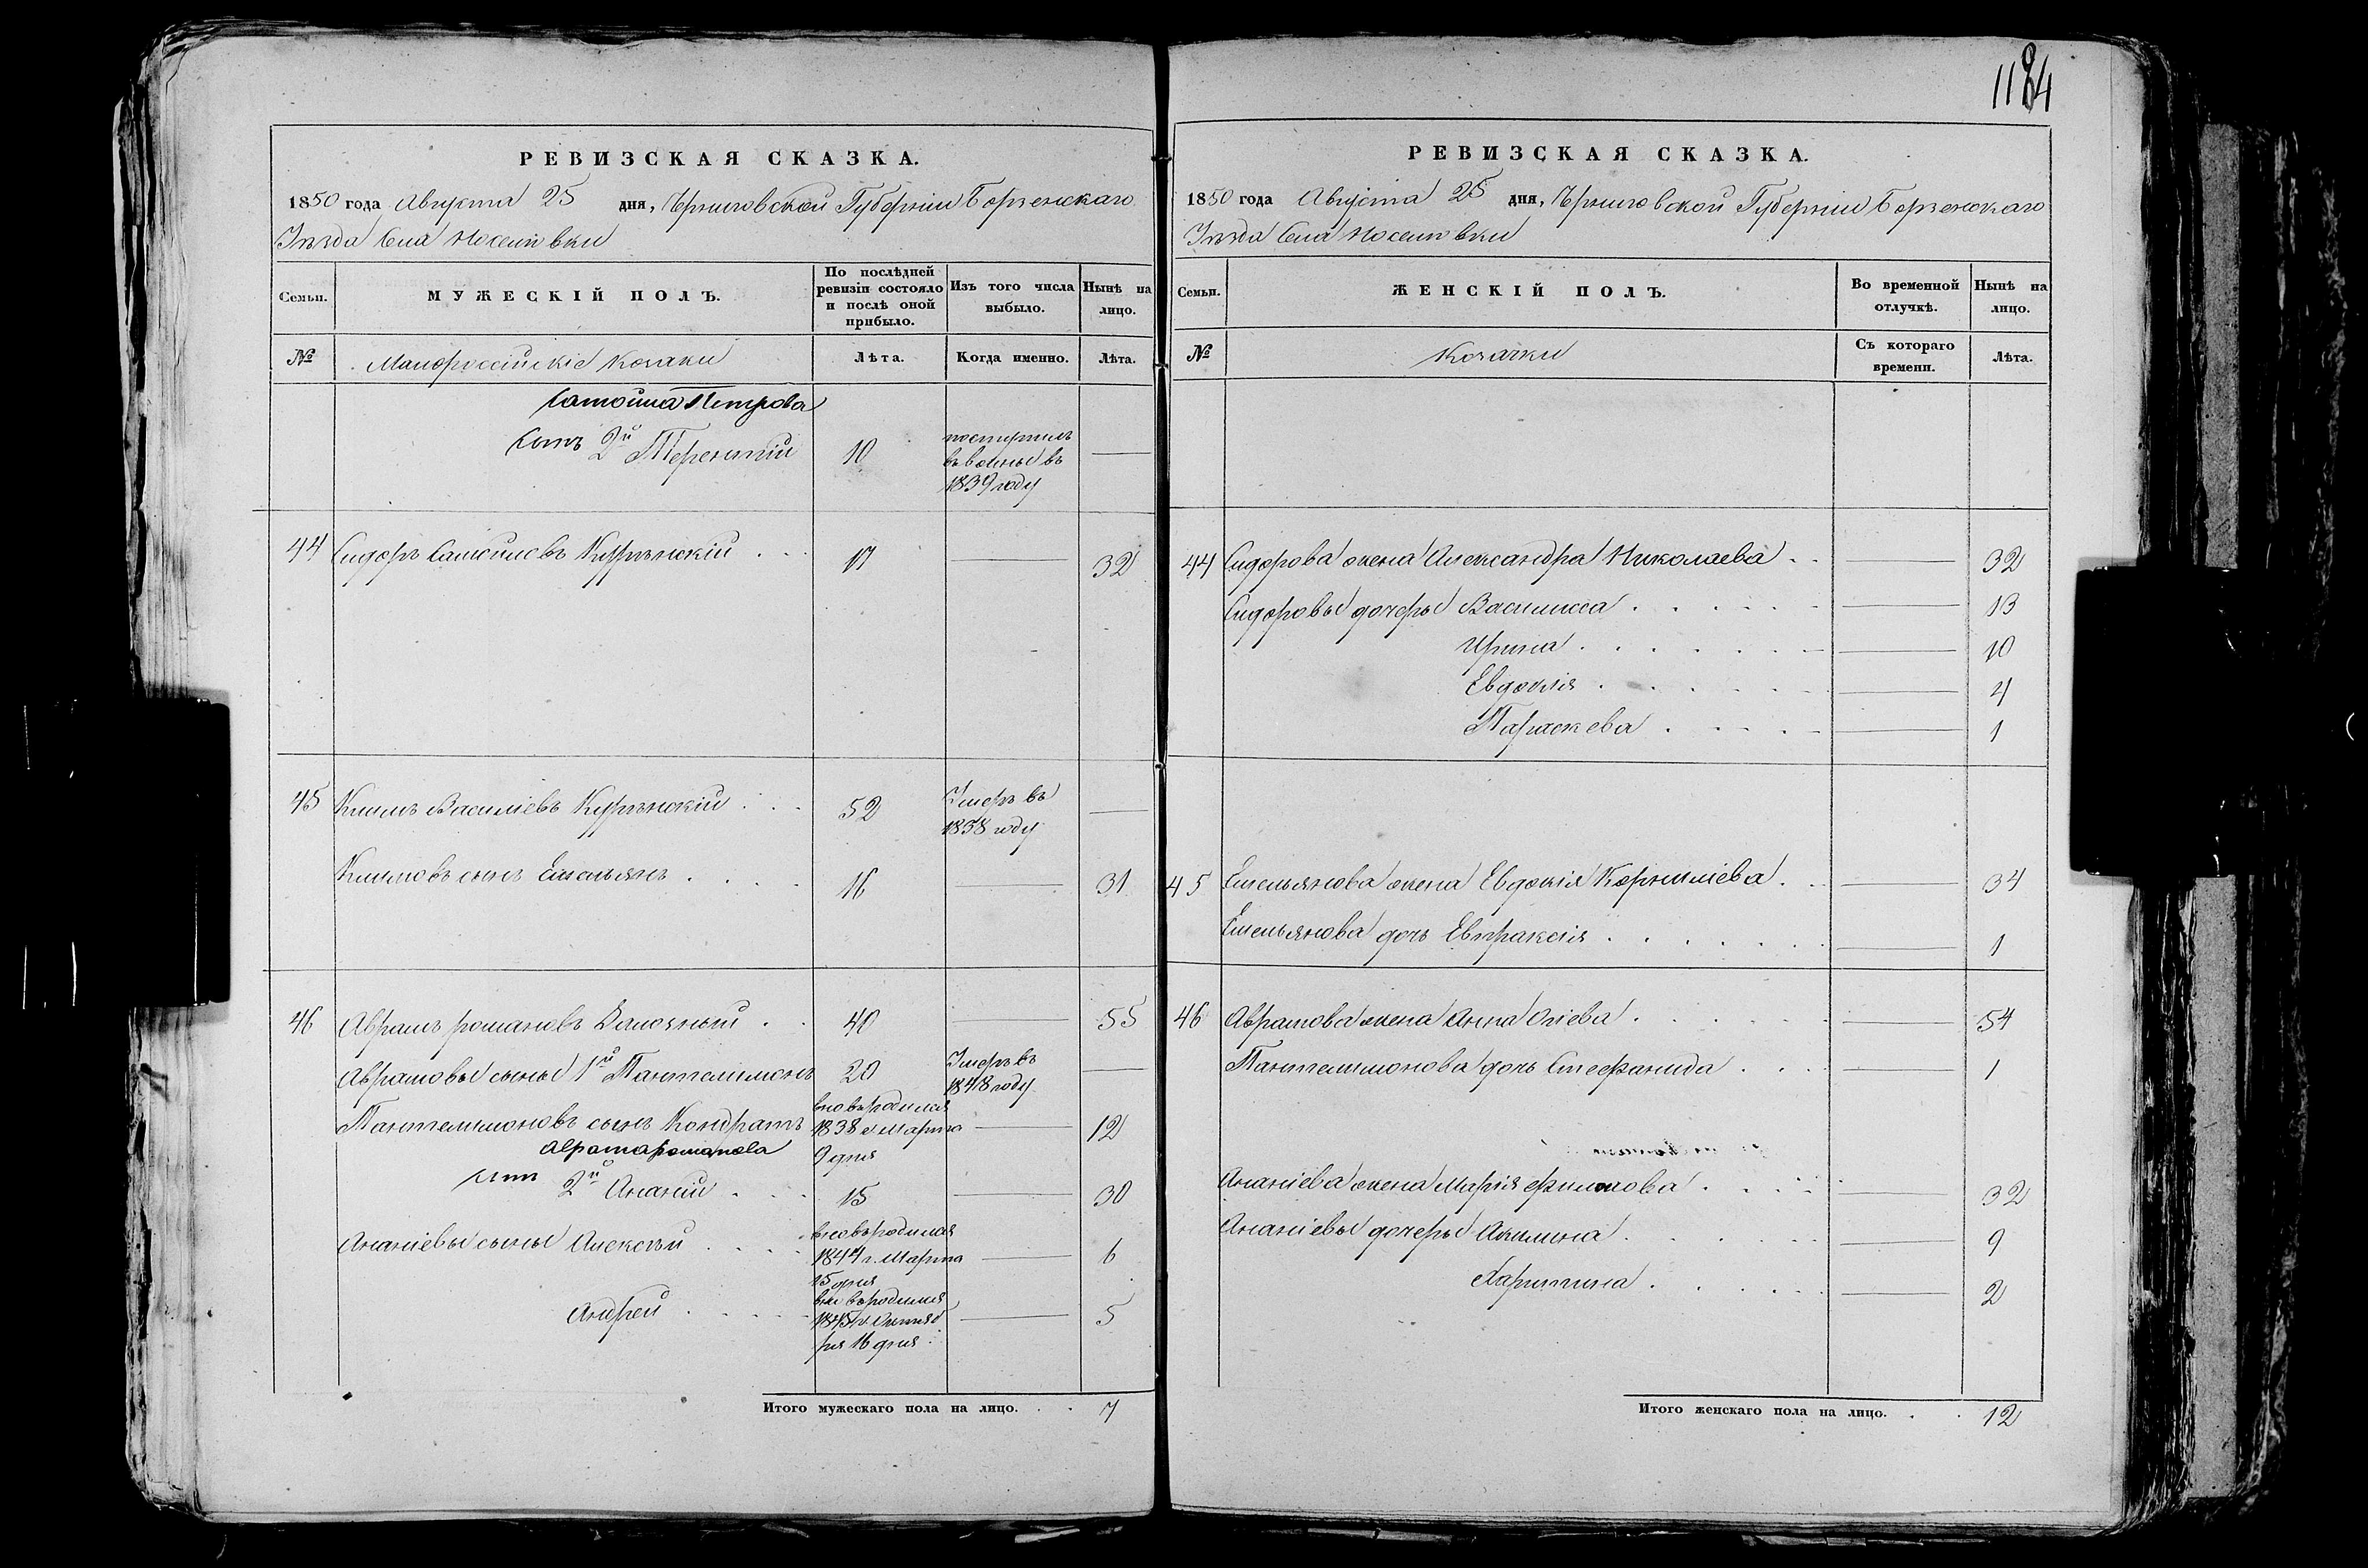 1184
РЕВИЗСКАЯ СКАЗКА.
1850 года Августа 25 дня, Черниговской Губернии Борзенского
Уезда Села Носелѣвки
Семьи.
МУЖЕСКІЙ ПОЛЪ.
По послѣдней
ревизіи состояло
и послѣ оной
прибыло.
Изъ того числа
выбыло.
Нынѣ на
лицо.
№
Малороссійскіе Козаки
Лѣта.
Когда именно.
Лѣта.
Самойла Петрова
сынъ 2й Терентій 10 поступилъ
въ воины въ
1839 году
44 Сидоръ Самойловъ Курѣнскій 17 32
45 Климъ Василіевъ Курѣнскій 52 Умеръ въ
1838 году
Климовъ сынъ Емельянъ 16 31
46 Аврамъ Романовъ 40 55
Аврамовы сыны 1й Пантелимонъ 20 Умеръ въ
1848 году
Пантелимоновъ сынъ Кондратъ вновь родился
1838 г. Марта
9 дня 12
Аврама Романова
сынъ 2й Ананій 15 30
Ананіевы сыны Алексѣй вновь родился
1844 г. Марта
15 дня 6
Андрей вновь родился
1845 г. Октяб
ря 16 дня 5
Итого мужескаго пола на лицо. 7
РЕВИЗСКАЯ СКАЗКА.
1850 года Августа 25 дня, Черниговской Губернии Борзенского
Уезда Села Носелѣвки
Семьи.
ЖЕНСКІЙ ПОЛЪ.
Во временной
отлучкѣ.
Нынѣ на
лицо.
№
Козачки
Съ котораго
времени.
Лѣта.
44 Сидорова жена Александра Николаева 32
Сидоровы дочеры Василисса 13
Ирина 10
Евдокія 4
Параскева 1
45 Емельянова жена Евдокія Корниліева 34
Емельянова дочь Евпраксія 1
46 Аврамова жена Анна 54
Пантелимонова дочь Стефанида 1
Ананіева жена Марія Филипова 32
Ананіевы дочеры Акилина 9
Харитина 2
Итого женскаго пола на лицо. 12